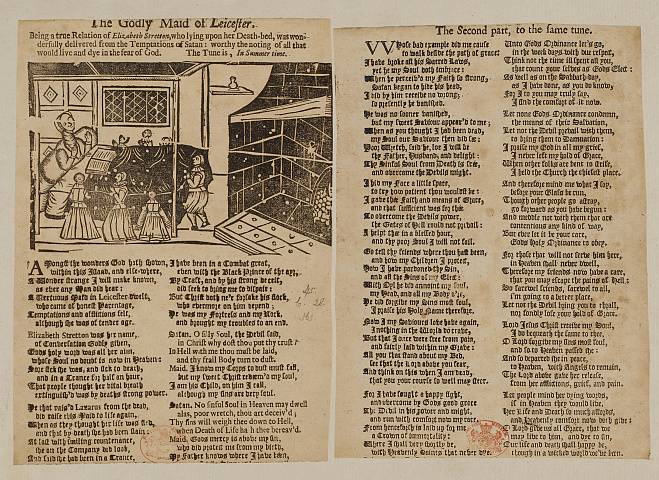 The Godly Maid of Leicester.
Being a true Relation of Elizabeth Stretton, who lying upon her Death-bed, was won-
derfully delivered from the Temptations of Satan: worthy the noting of all that
would live and dye in the fear of God. The Tune is, In Summer time.
Amongst the wonders God hath shown,
within this Island, and else-where,
A Wonder strange I will make known,
as ever any Man did hear:
A Vertuous Maid in Leicester dwelt,
who came of honest Parentage,
Temptations and afflictions felt,
although she was of tender age.
Elizabeth Stretton was her name,
of Conversation Godly given,
Gods holy word was all her aim,
whose Soul no doubt is now in Heaven:
Sore sick she was, and sick to death,
and in a Trance for half an hour
That people thought her vital breath
extinguish'd was by deaths strong power.
He that rais'd Lazarus from the dead,
did raise this Maid to life again,
When as they thought her life was fled,
and that by Death she had been slain:
At last with smiling countenance,
she on the Company did look,
And said she had been in a Trance,
I have been in a Combat great,
even with the Black Prince of the ayr,
By Craft, and by his strong deceit,
did seek to bring me to despair:
But Christ doth ne'r forsake his flock,
who evermore on him depend
He was my Fortress and my Rock,
and brought my troubles to an end.
Satan. O silly Soul, the Devil said,
in Christ why dost thou put thy trust?
In Hell with me thou must be laid,
and thy frail Body turn to dust.
Maid. I know my Corps to dust must fall,
but my sweet Christ redeem'd my soul,
I am his Child, on him I call,
although my sins are very foul.
Satan. No sinful Soul in Heaven may dwell
alas, poor wretch, thou art deceiv'd;
Thy sins will weigh thee down to Hell,
when Death of Life hath thee bereav'd.
Maid. Gods mercy is above my sin,
who did protect me from my birth,
My Father knows where I have been,
The Second part, to the same tune.
Whose bad example did me cause
to walk beside the path of grace:
I have broke all his Sacred Laws,
yet he my Soul doth embrace:
When he perceiv'd my Faith so strong,
Satan began to hide his head,
I did by him receive no wrong;
so presently he vanished.
He was no sooner vanished,
but my sweet Saviour appear'd to me;
When as you thought I had been dead,
my Soul our Saviour then did see:
Poor Wretch, said he, for I will be
thy Father, Husband, and delight:
Thy Sinful Soul from Death is free,
and overcome the Devils might.
I hid my Face a little space,
to try how patient thou wouldst be:
I gave thee Faith and means of Grace,
and that sufficient was for thee
To overcome the Devils power,
the Gates of Hell could not prevail:
I helpt thee in a blessed hour,
and thy poor Soul I will not fail.
Go tell thy friends where thou hast been,
and how my Children I protect,
Now I have pardoned thy Sin,
and all the Sins of my Elect:
With Oyl he did annoint my soul,
my Head, and all my Body o're,
He did forgive my Sins most foul,
I praise his Holy Name therefore.
Now I my Saviours love have again,
I nothing in the World do crave,
But that I once were free from pain,
and safely laid within my Grave:
All you that stand about my Bed,
see that the Lord above you fear,
And think on this when I am dead,
that you your course so well may steer.
For I have fought a happy fight,
and overcome by Gods good grace
The Devil in his power and might,
and run with comfort now my race:
From henceforth is laid up for me
a Crown of immortality:
Where I shall ever blessed be,
with Heavenly Saints that never dye.
Unto Gods Ordinance let's go,
in the week days with due respect,
Think not the time ill spent all you,
that count your selves as Gods Elect:
As well as on the Sabbath-day,
as I have done, as you do know,
For I to you may truly say,
I find the comfort of it now.
Let none Gods Ordinance condemn,
the means of their Salvation,
Let not the Devil prevail with them,
to bring them to Damnation:
I praise my God in all my grief,
I never left my hold of Grace,
When other folks are bent to strife,
I held the Church the chiefest place.
And therefore mind me what I say,
before your Glass be run,
Though other people go astray,
go forward as you have begun:
And meddle not with them that are
contentious any kind of way,
But ever let it be your care,
Gods Holy Ordinance to obey.
For those that will not serve him here,
in Heaven shall never dwell,
Therefore my friends now have a care,
that you may escape the pains of Hell:
So farewel friends, farewel to all,
I'm going to a better place,
Let not the Devil bring you to thrall,
nor fondly lose your hold of Grace.
Lord Jesus Christ receive my Soul,
I do bequeath the same to thee,
O Lord forgive my sins most foul,
and so to Heaven passed she:
And so departed she in peace,
to Heaven, with Angels to remain,
The Lord above gave her release,
from her afflictions, grief, and pain.
Let people mind her dying words,
if in Heaven they would live,
Her Life and Death so much affords,
and Heavenly comfort now doth give:
Lord give us all Grace, that we
may live to him, and dye to sin,
Our life and deeds shall happy be,
though in a wicked world we've been.